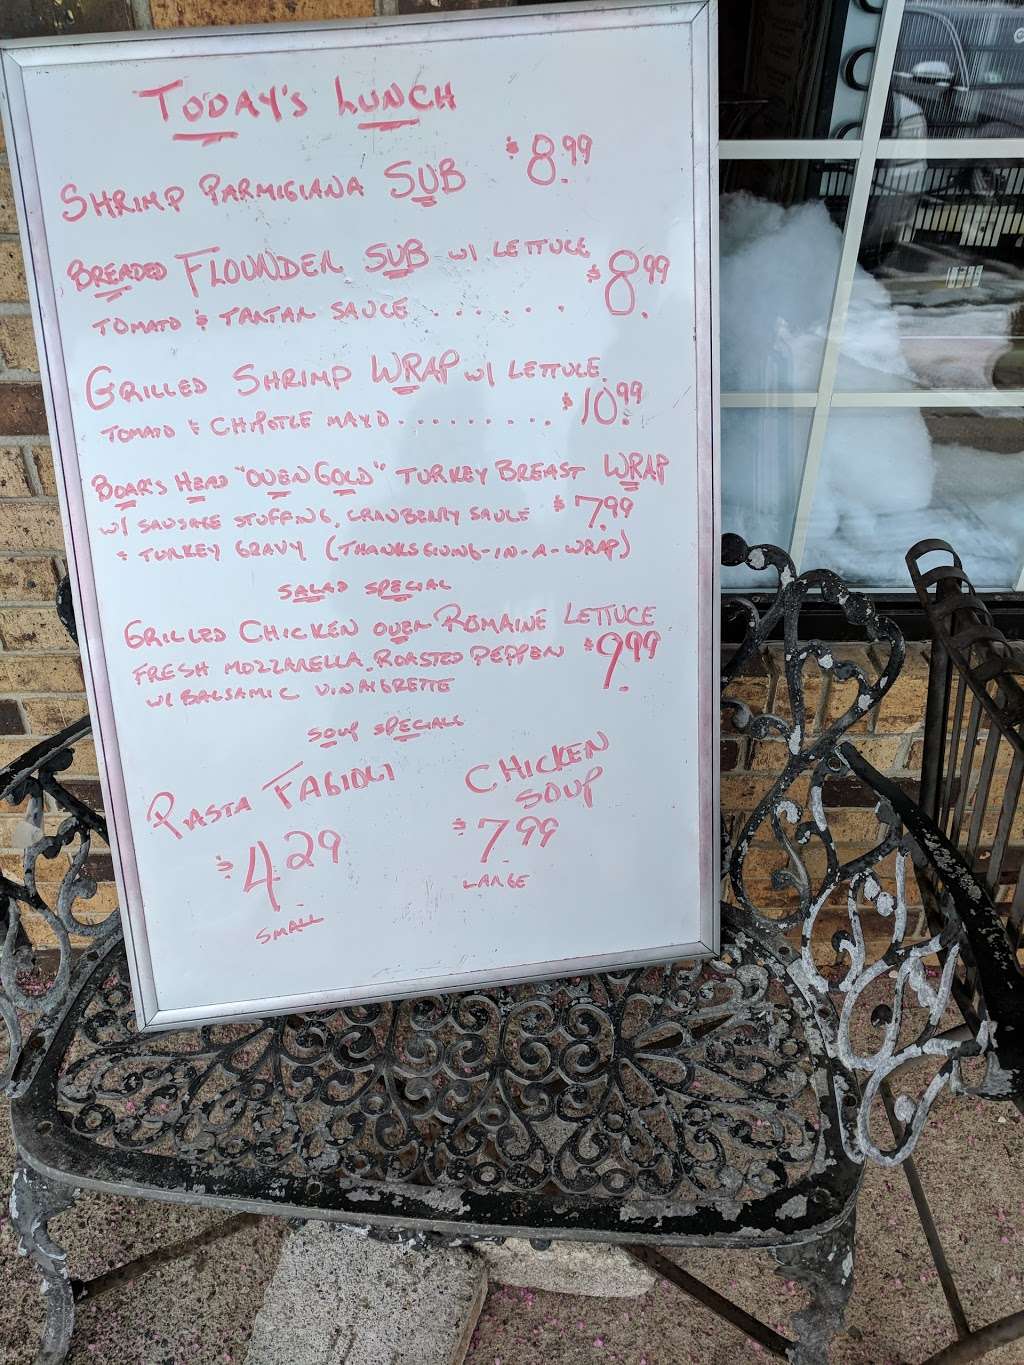 TODAY'S LUNCH
SHRIMP PARMIGIANA SUB $8.99
BREADED FLOUNDER SUB W/ LETTUCE
TOMATO & TARTAR SAUCE . . . . . . $8.99
GRILLED SHRIMP WRAP W/ LETTUCE,
TOMATO & CHIPOTLE MAYO . . . . . . . . . $10.99
BOAR'S HEAD "OVENGOLD" TURKEY BREAST WRAP
W/ SAUSAGE STUFFING, CRANBERRY SAUCE $7.99
& TURKEY GRAVY (THANKSGIVING-IN-A-WRAP)
SALAD SPECIAL
GRILLED CHICKEN OVER ROMAINE LETTUCE
FRESH MOZZARELLA, ROASTED PEPPER $9.99
W/ BALSAMIC VINAIGRETTE
SOUP SPECIALS
PASTA FAGIOLI
$4.29
SMALL
CHICKEN
SOUP
$7.99
LARGE